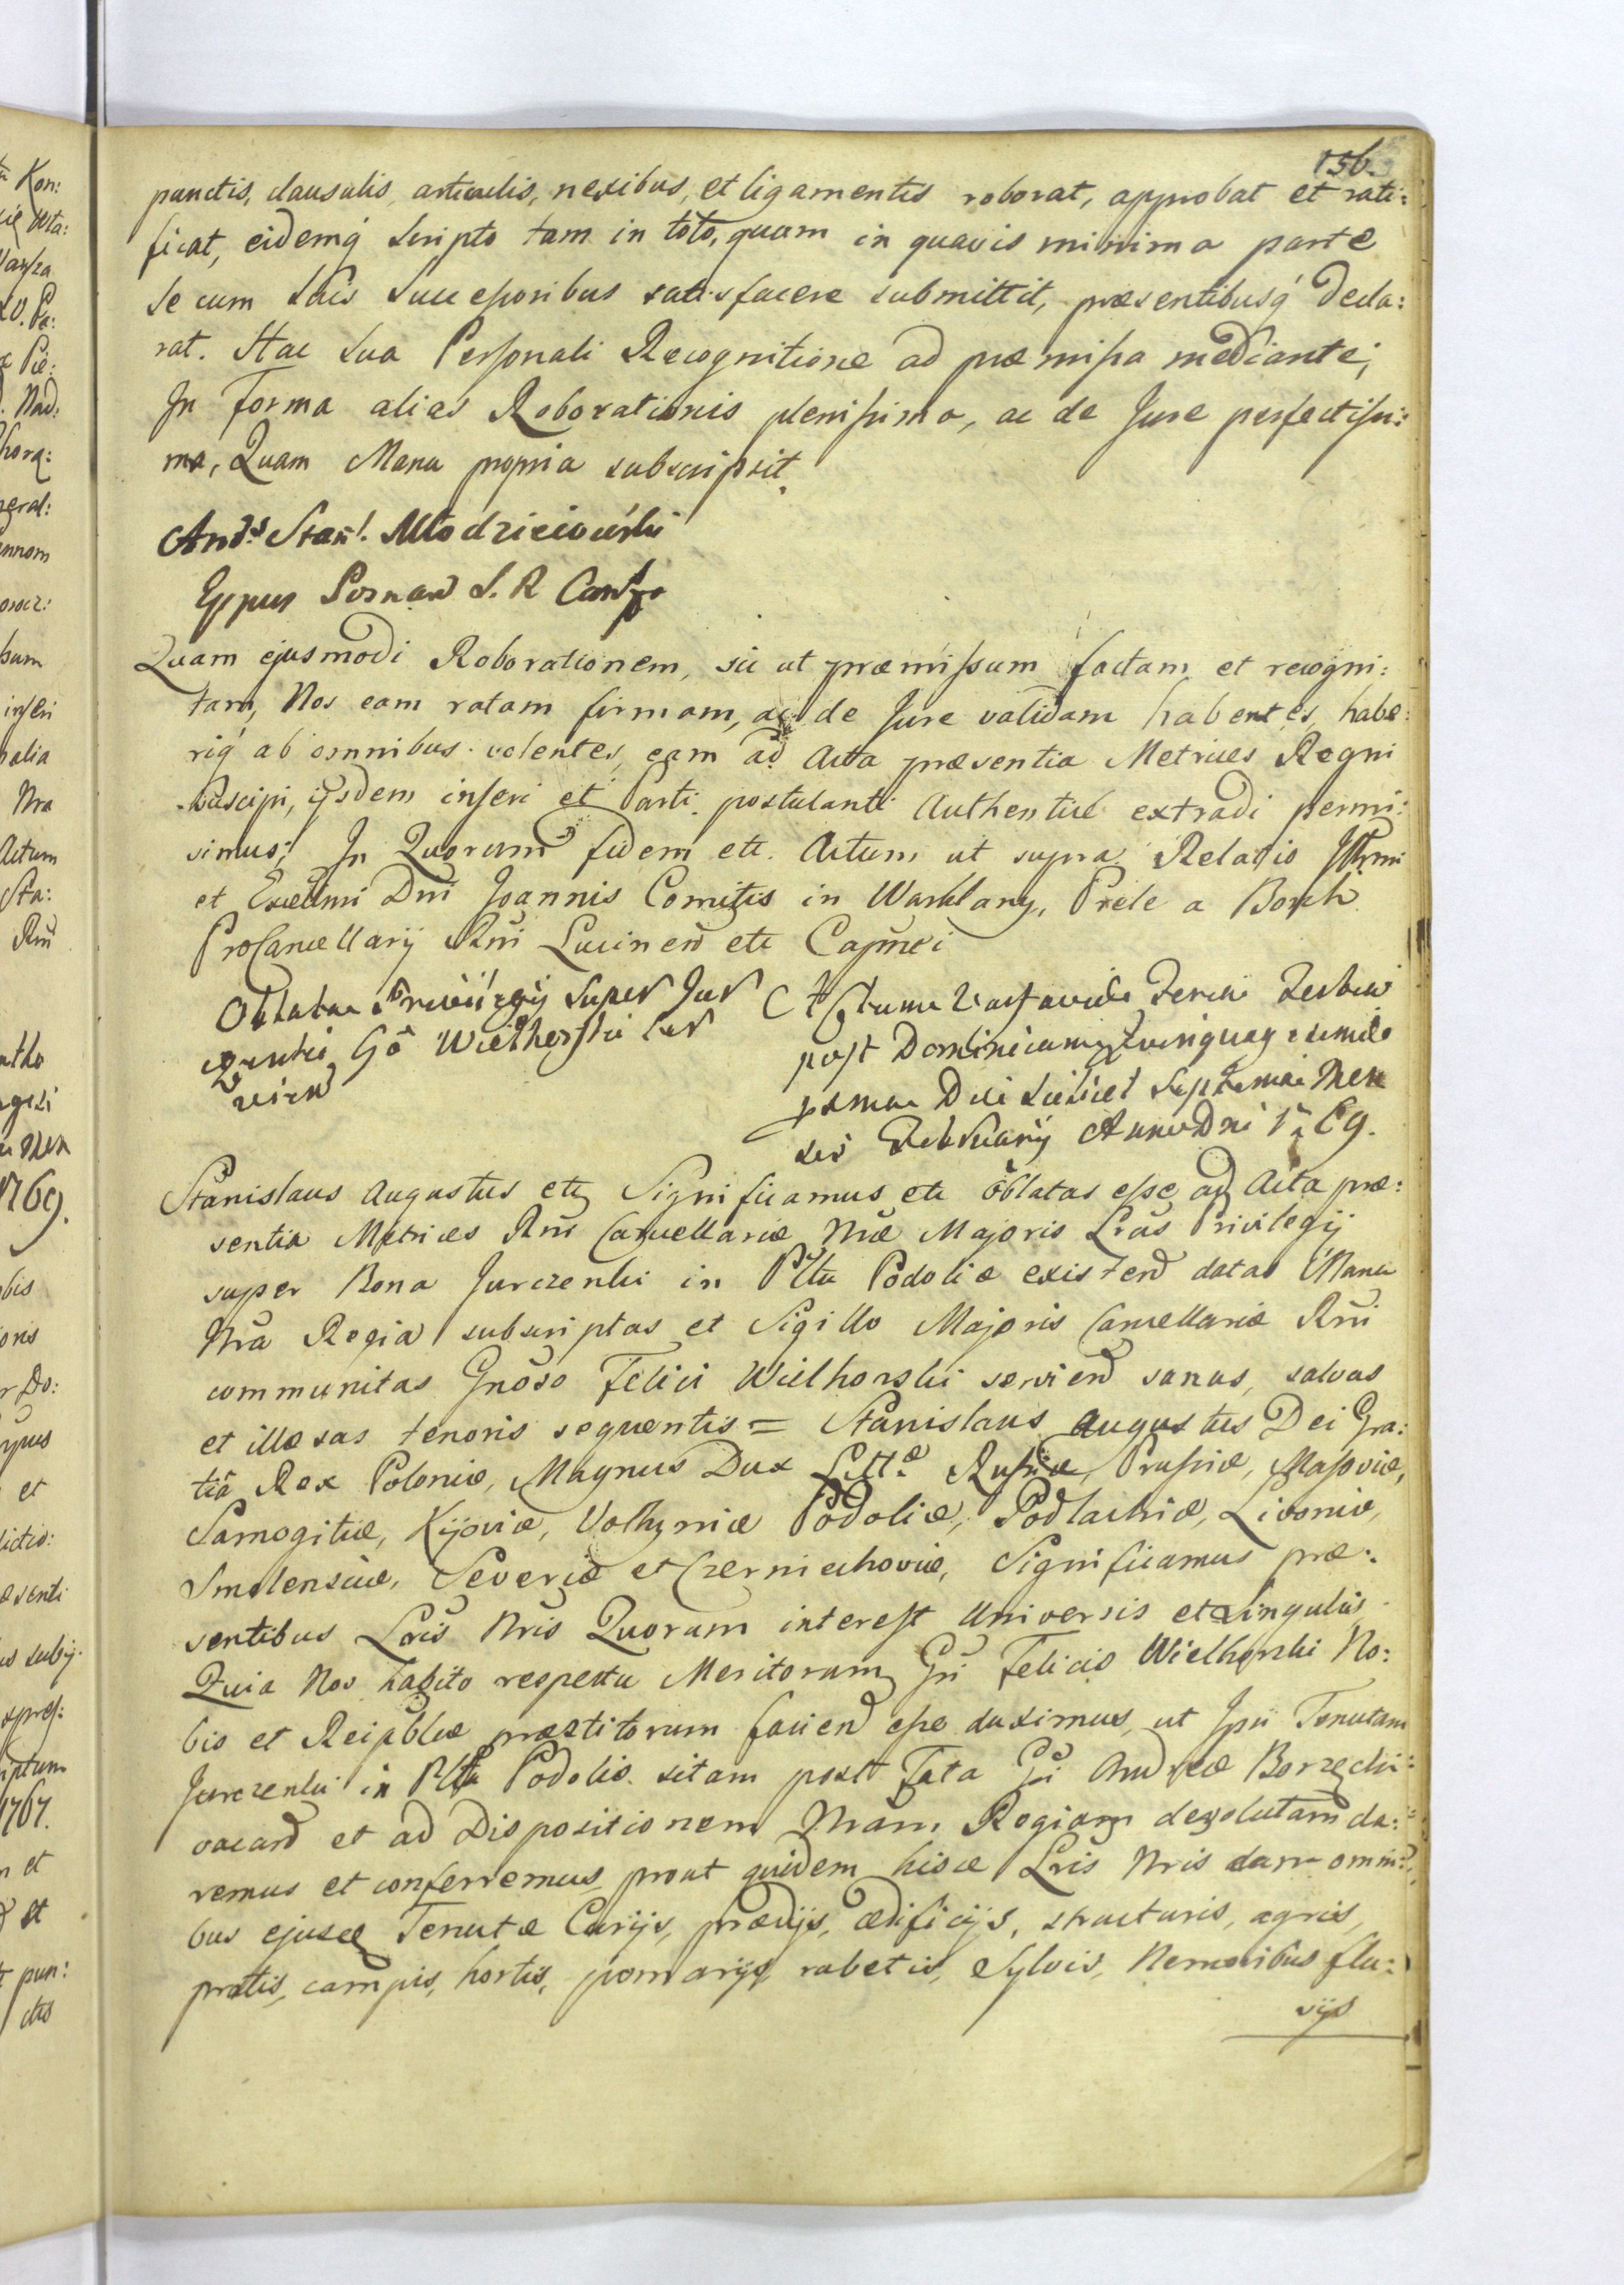 156.
punctis, clausulis, articulis, nexibus, et ligamentis roborat, approbat et rati:
ficat, eidemq́ Scripto tam in toto, quam in quavis minima parte
se cum Suis Successoribus satisfacere submittit, præsentibusq́ decla:
rat. Hac Sua Personali Recognitione ad præmissa mediante;
In Forma alias Roborationis plenissima, ac de Jure perfectissi:
ma, Quam Manu propria subscripsit.
And: Stan: Młodzieiowski
Eppus Posnan S. R Canc
Quam ejusmodi Roborationem, sic ut præmissum factam et recogni:
tam, Nos eam ratam firmam, ac de Jure validam habentes, habe:
riq́ ab omnibus volentes, eam ad Acta præsentia Metrices Regni
suscipi, ijsdem inseri et Parti postulanti Authentice extradi permi:
simus; In Quorum fidem etc. Actum ut supra Relatio
et Excellmi Dni Joannis Comitis in Warklany, Prele a Borch
ProCancellarij Rñi Lucinen etc Capnei
Oblata Privilegij super Jur
czenki Gô Wielhorski ser
vien
Actum Varsaviæ Feria Tertia
post Dominicam Quinquagesimæ
proma Die scilicet Septima Men
sis Februarij Anno Dni 1769.
Stanislaus Augustus etc Significamus etc oblatas esse ad Acta præ:
sentia Metrices Rni Cancellariæ Nræ Majoris Lras Privilegij
super Bona Jurczenki in Pltu Podoliæ existen datas Manu
Nra Regia subscriptas et Sigillo Majoris Cancellariæ Rni
communitas Gnoso Felici Wielhorski servien sanas, salvas
et illæsas tenoris sequentis = Stanislaus Augustus Dei Gra:
tiâ Rex Poloniæ, Magnus Dux Litt.æ Russiæ, Prussiæ, Masoviæ,
Samogitiæ, Kijoviæ, Volhyniæ Podoliæ, Podlachiæ, Livoniæ,
Smolensciæ, Severiæ et Czerniechoviæ, Significamus præ:
sentibus Lris Nris Quorum interest Universis et Singulis
Quia Nos habito respectu Meritorum Gñi Felicis Wielhorski No:
bis et Reipblcæ præstitorum facien esse duximus, ut Ipsi Tenutam
Jurczenki in Pltu Podoliæ sitam post Fata Gñi Andreæ Borzęcki
vacan et ad Dispositionem Nram Regiam devolutam da:
remus et conferremus, prout quidem hisce Lris Nris damus omni:
bus ejusce Tenutæ Curijs, prædijs, ædificijs, structuris, agris,
pratis, campis, hortis, pomarijs, rubetis, Sylvis, Nemoribus flu:
vijs